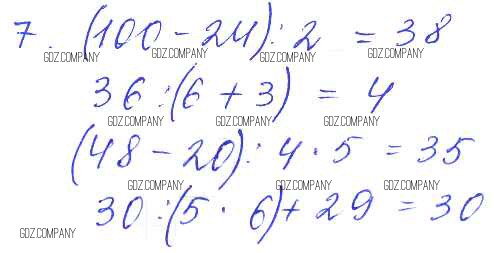 7. (100 - 24) : 2 = 38
GDZ.COMPANY GDZ.COMPANY GDZ.COMPANY GDZ.COMPANY
36 : (6 + 3) = 4
GDZ.COMPANY GDZ.COMPANY GDZ.COMPANY
(48 - 20) : 4 · 5 = 35
GDZ.COMPANY GDZ.COMPANY GDZ.COMPANY
30 : (5 · 6) + 29 = 30
GDZ.COMPANY